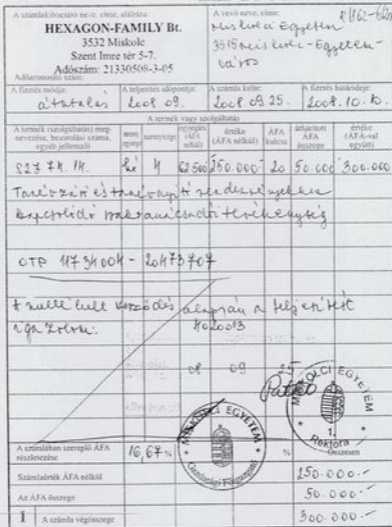 A számlakibocsátó neve, címe, aláírása
A vevő neve, címe:
HEXAGON-FAMILY Bt.
3532 Miskolc
Szent Imre tér 5-7.
Adószám: 21330509-3-05
Adóazonosító szám:
Miskolci Egyetem
3515 Miskolc-Egyetem-
város
A fizetés módja:
A teljesítés időpontja:
A számla kelte:
A fizetés határideje:
átutalás
2008. 09.
2008. 09 25.
2008. 10.
A termék vagy szolgáltatás
A termék (szolgáltatás) megnevezése, besorolási száma, egyéb jellemzői
egységára (ÁFA nélkül)
értéke (ÁFA nélkül)
ÁFA kulcsa
áthárított ÁFA összege
értéke (ÁFA-val együtt)
SZJ 74.14.
4 62 500 250.000- 20 50.000 300.000-
Tanévzáró és tanévnyitó rendezvényekhez
kapcsolódó szaktanácsadói tevékenység
OTP 11734004 - 20473707
A mellékelt szerződés alapján a teljesítést
igazolom:
4020013
08 09 25
MISKOLCI EGYETEM
Rektora
1.
MISKOLCI EGYETEM
Gazdasági Főigazgató
A számlában szereplő ÁFA részletezése
16,67 %
%
Összesen
Számlaérték ÁFA nélkül
250.000.-
Az ÁFA összege
50.000.-
1
A számla végösszege
300.000.-